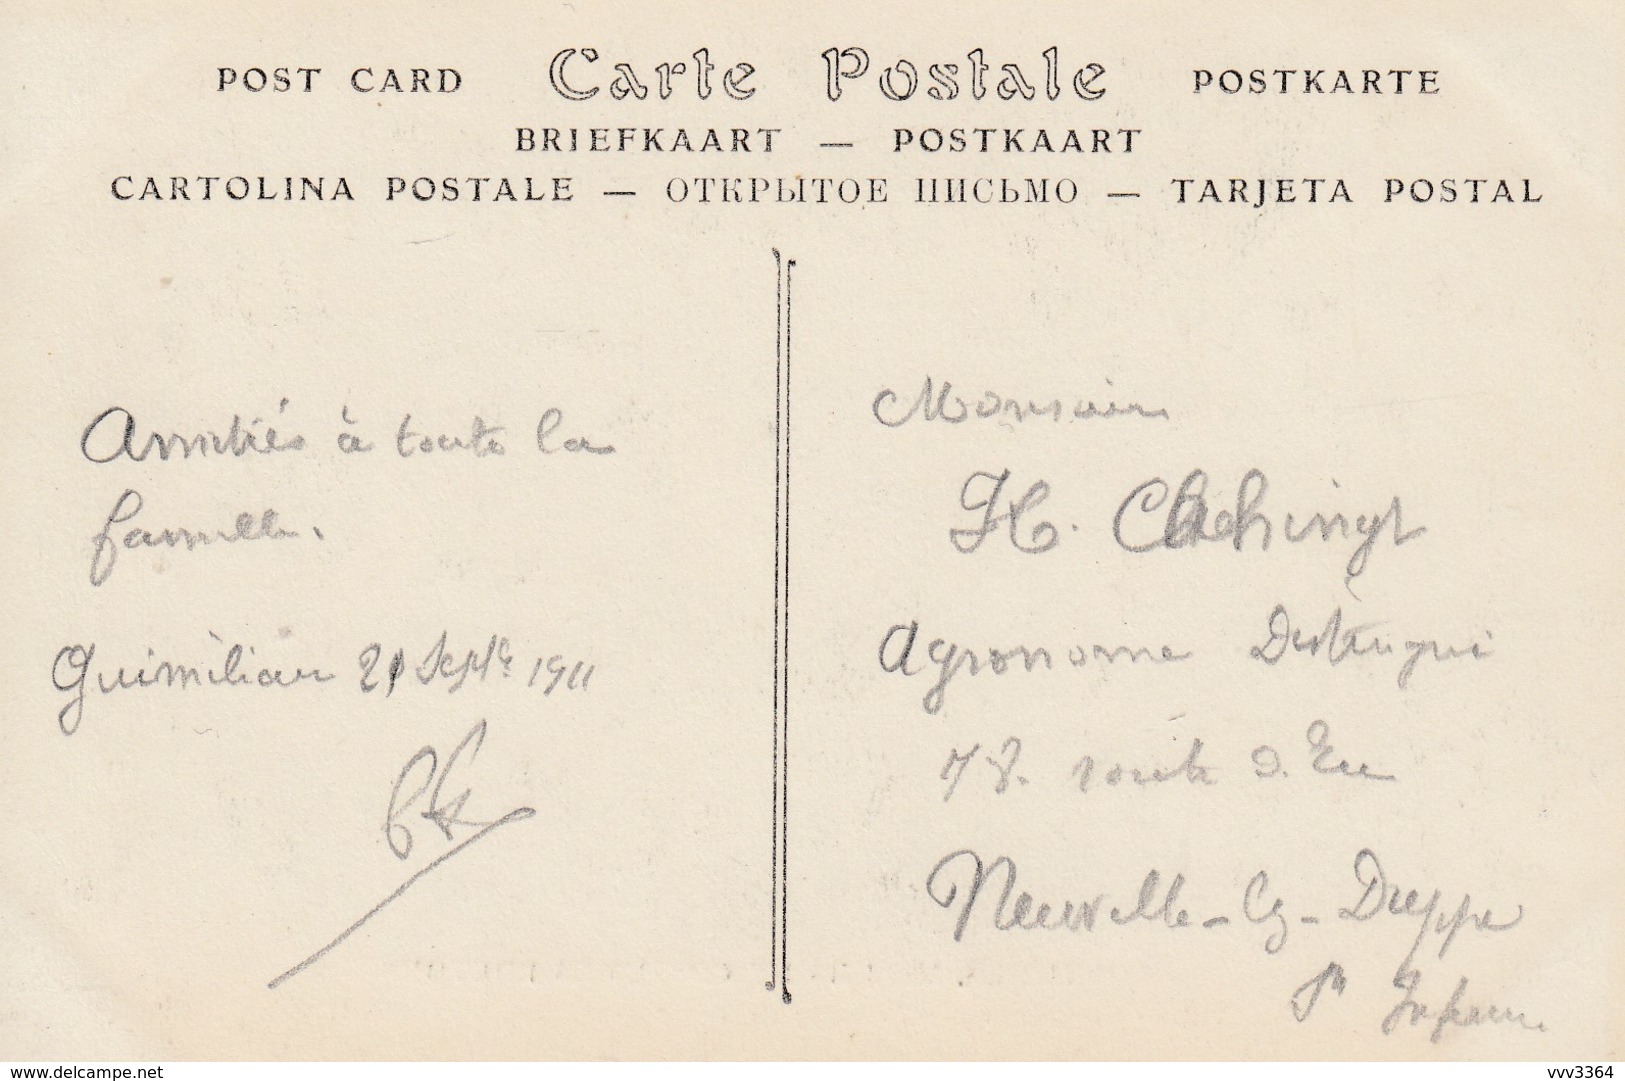 POST CARD Carte Postale POSTKARTE
BRIEFKAART — POSTKAART
CARTOLINA POSTALE — ОТКРЫТОЕ ПИСЬМО — TARJETA POSTAL
Amitiés à toute la
famille.
Guimiliau 21 Septbre 1911
Monsieur
H.
Agronome Distingué
78. route d'Eu
Neuville-lez-Dieppe
Sne Inférieure
delcampe.net
vvv3364